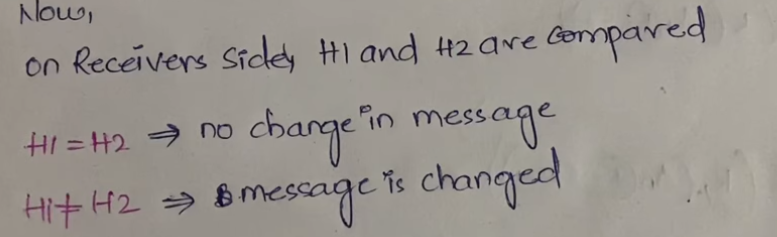 Now,
on Receivers side, H1 and H2 are compared
H1 = H2 ⇒ no change in message
H1 ≠ H2 ⇒ message is changed